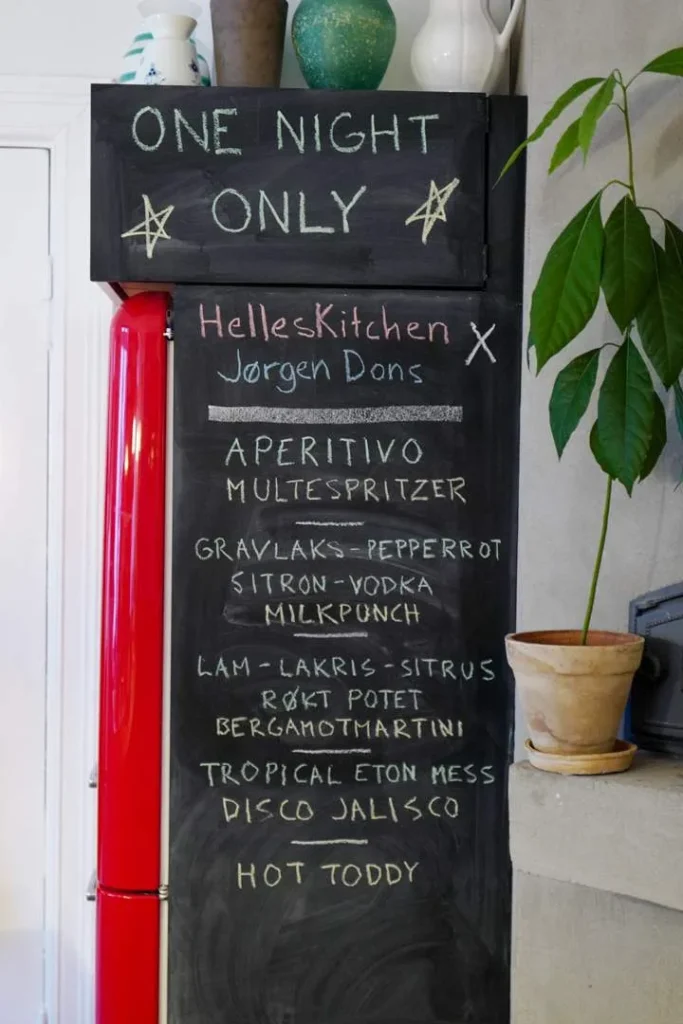 ONE NIGHT
ONLY
HellesKitchen X
Jørgen Dons
APERITIVO
MULTESPRITZER
GRAVLAKS-PEPPERROT
SITRON-VODKA
MILKPUNCH
LAM-LAKRIS-SITRUS
RØKT POTET
BERGAMOTMARTINI
TROPICAL ETON MESS
DISCO JALISCO
HOT TODDY